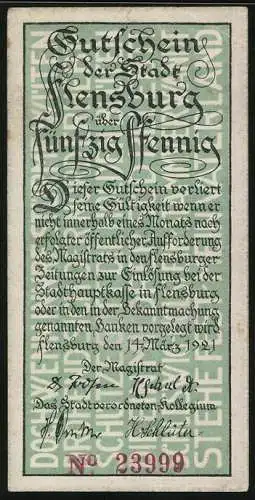 Gutschein
der Stadt
Flensburg
über
fünfzig Pfennig
Dieser Gutschein verliert
seine Gültigkeit wenn er
nicht innerhalb eines Monats nach
erfolgter öffentlicher Aufforderung
des Magistrats in den flensburger
Zeitungen zur Einlösung bei der
Stadthauptkasse in flensburg
oder in den in der Bekanntmachung
genannten Banken vorgelegt wird
flensburg den 14 März 1921
Der Magistrat
Das Stadtverordneten-Kollegium
No 23999